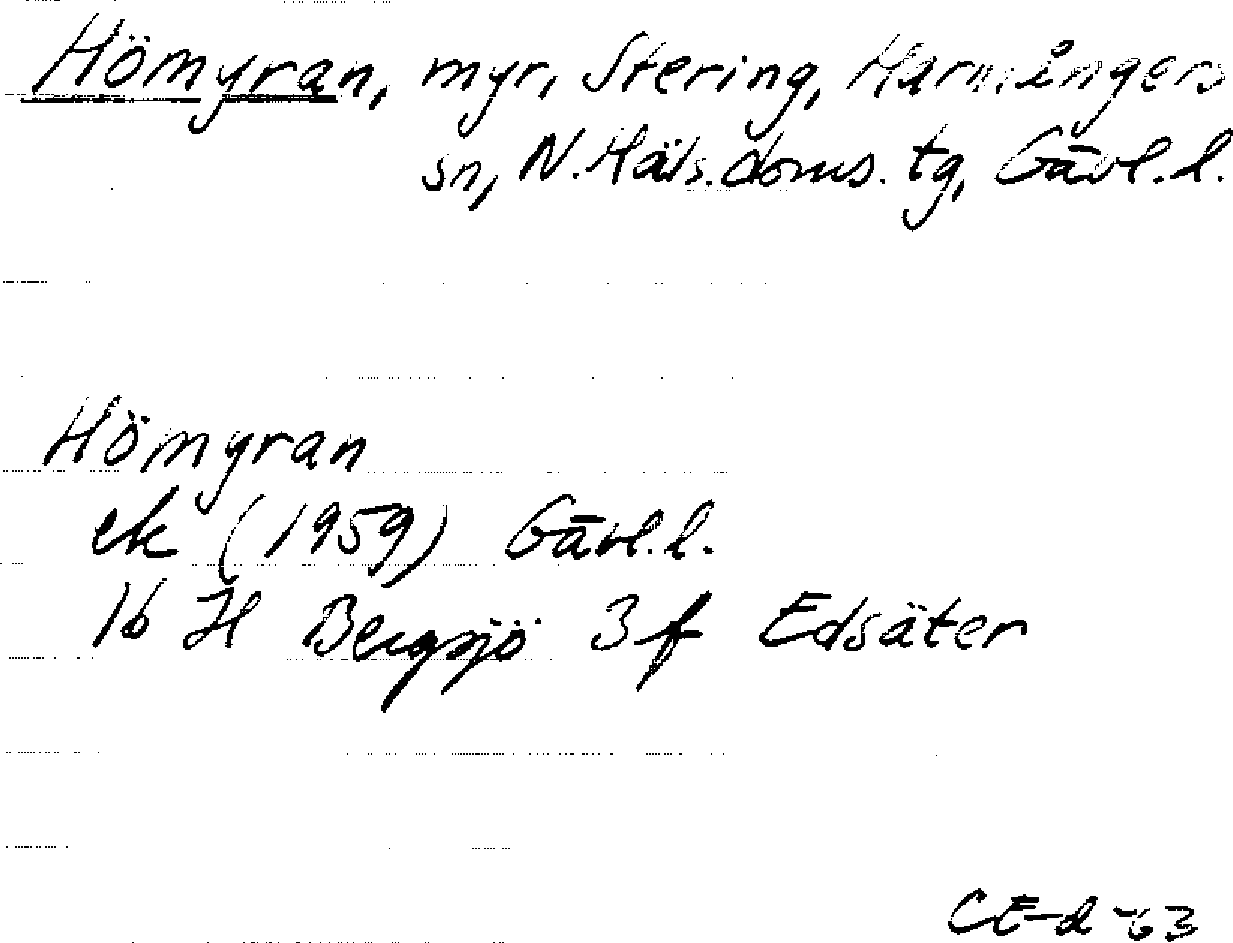 Hömyran, myr, Stering, Harmångers
sn, N. Häls. doms. tg, Gävl. l.
Hömyran
ek (1959) Gävl. l.
16 H Bergsjö 3 f Edsäter
CE-d -63